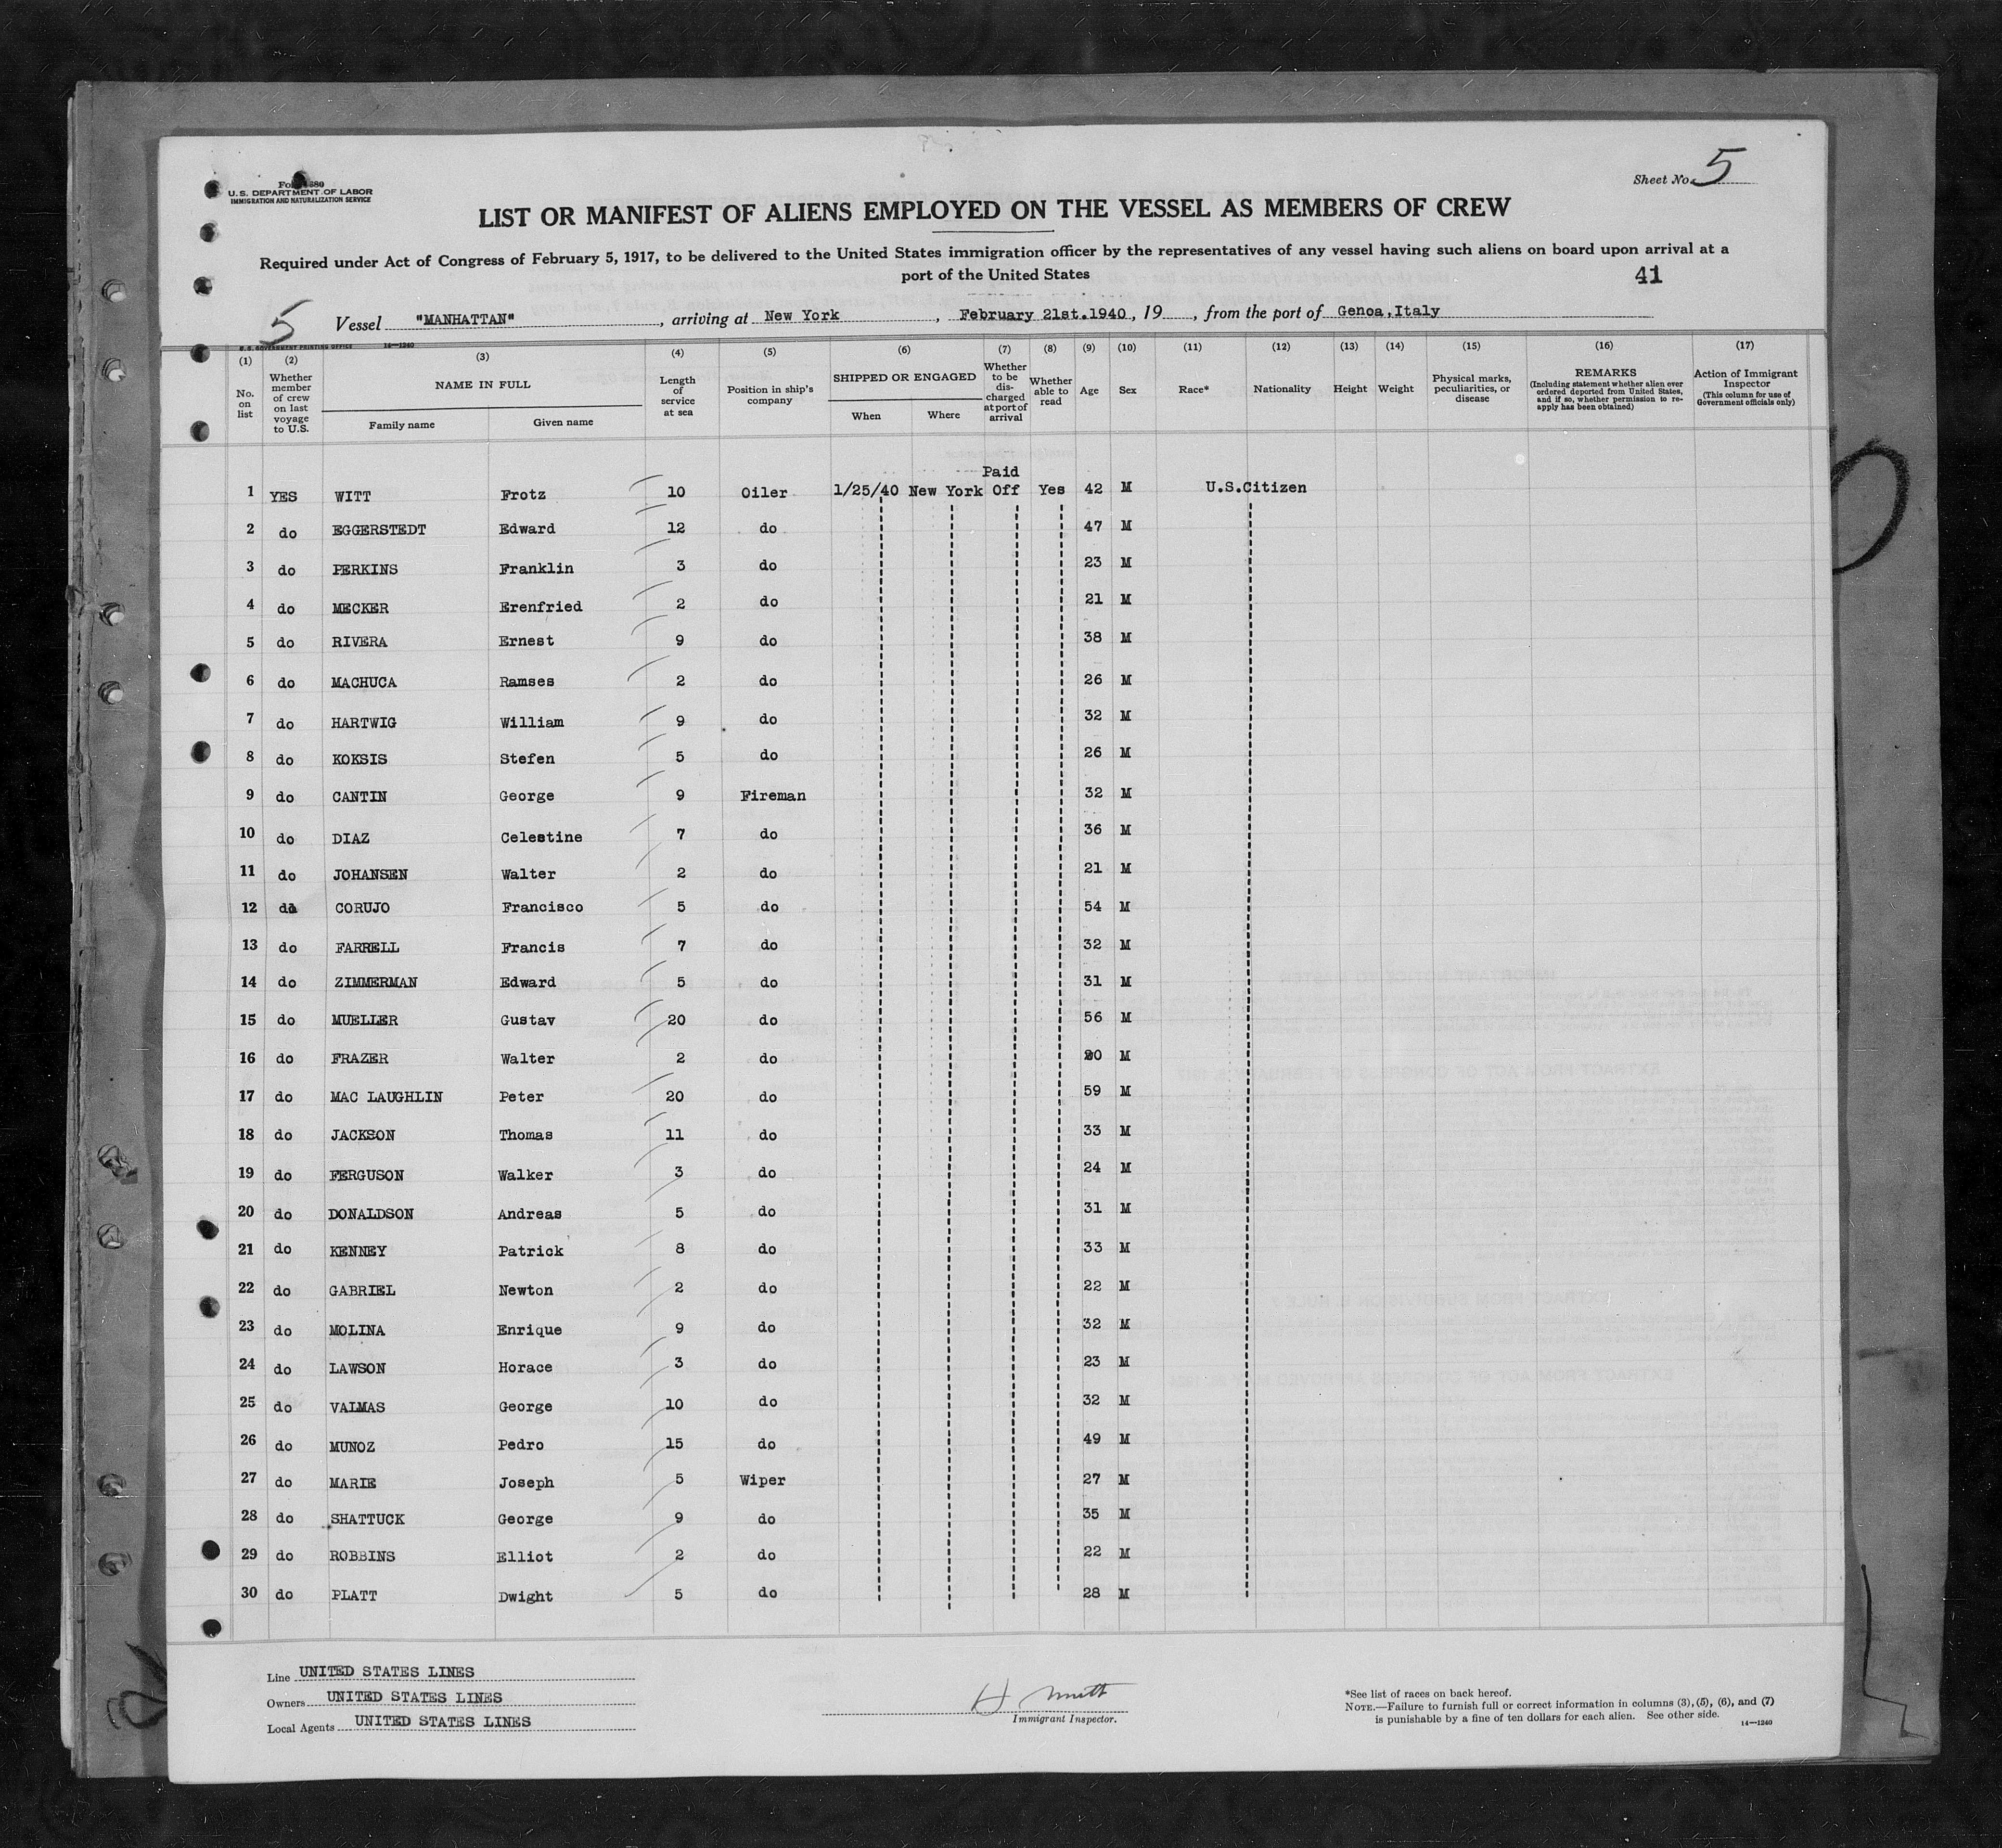 U.S. DEPARTMENT OF LABOR
IMMIGRATION AND NATURALIZATION SERVICE
Sheet No. 5
LIST OR MANIFEST OF ALIENS EMPLOYED ON THE VESSEL AS MEMBERS OF CREW
Required under Act of Congress of February 5, 1917, to be delivered to the United States immigration officer by the representatives of any vessel having such aliens on board upon arrival at a
port of the United States
41
5 Vessel "MANHATTAN", arriving at New York, February 21st.1940, 19, from the port of Genoa,Italy
U.S. GOVERNMENT PRINTING OFFICE 14—1240
(1) (2) (3) (4) (5) (6) (7) (8) (9) (10) (11) (12) (13) (14) (15) (16) (17)
No. on list
Whether member of crew on last voyage to U.S.
NAME IN FULL
Family name Given name
Length of service at sea
Position in ship's company
SHIPPED OR ENGAGED
When Where
Whether to be discharged at port of arrival
Whether able to read
Age
Sex
Race*
Nationality
Height
Weight
Physical marks, peculiarities, or disease
REMARKS
(Including statement whether alien ever ordered deported from United States, and if so, whether permission to re-apply has been obtained)
Action of Immigrant Inspector
(This column for use of Government officials only)
Paid
1 YES WITT Frotz 10 Oiler 1/25/40 New York Off Yes 42 M U.S.Citizen
2 do EGGERSTEDT Edward 12 do 47 M
3 do PERKINS Franklin 3 do 23 M
4 do MECKER Erenfried 2 do 21 M
5 do RIVERA Ernest 9 do 38 M
6 do MACHUCA Ramses 2 do 26 M
7 do HARTWIG William 9 do 32 M
8 do KOKSIS Stefen 5 do 26 M
9 do CANTIN George 9 Fireman 32 M
10 do DIAZ Celestine 7 do 36 M
11 do JOHANSEN Walter 2 do 21 M
12 do CORUJO Francisco 5 do 54 M
13 do FARRELL Francis 7 do 32 M
14 do ZIMMERMAN Edward 5 do 31 M
15 do MUELLER Gustav 20 do 56 M
16 do FRAZER Walter 2 do 20 M
17 do MAC LAUGHLIN Peter 20 do 59 M
18 do JACKSON Thomas 11 do 33 M
19 do FERGUSON Walker 3 do 24 M
20 do DONALDSON Andreas 5 do 31 M
21 do KENNEY Patrick 8 do 33 M
22 do GABRIEL Newton 2 do 22 M
23 do MOLINA Enrique 9 do 32 M
24 do LAWSON Horace 3 do 23 M
25 do VALMAS George 10 do 32 M
26 do MUNOZ Pedro 15 do 49 M
27 do MARIE Joseph 5 Wiper 27 M
28 do SHATTUCK George 9 do 35 M
29 do ROBBINS Elliot 2 do 22 M
30 do PLATT Dwight 5 do 28 M
Line UNITED STATES LINES
Owners UNITED STATES LINES
Local Agents UNITED STATES LINES
Immigrant Inspector.
*See list of races on back hereof.
NOTE.—Failure to furnish full or correct information in columns (3), (5), (6), and (7)
is punishable by a fine of ten dollars for each alien. See other side.
14—1240